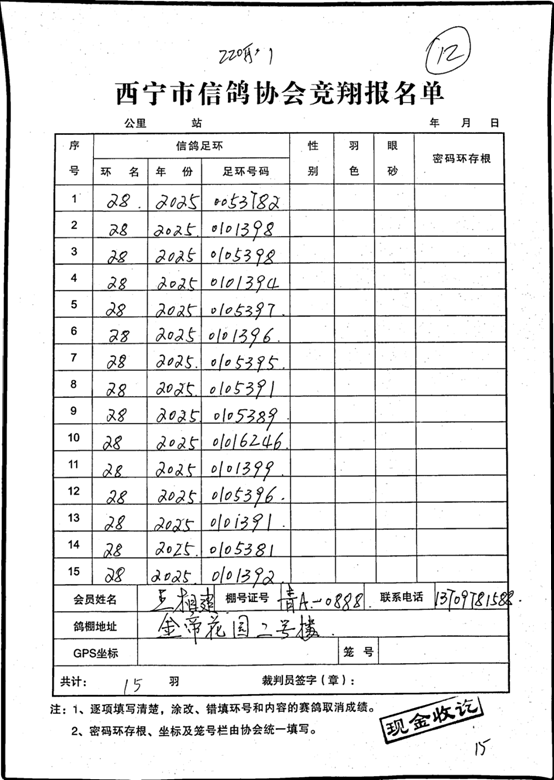 12
西宁市信鸽协会竞翔报名单
公里 站 年 月 日
序号 信鸽足环 性别 羽色 眼砂 密码环存根
环 名 年 份 足环号码
1 28. 2025 0053782
2 28 2025. 0101398
3 28 2025. 0105398
4 28 2025. 0101394
5 28 2025. 0105397
6 28 2025. 0101396.
7 28 2025. 0105395
8 28 2025. 0105391
9 28 2025. 0105389
10 28 2025. 01016246
11 28 2025. 0101399
12 28 2025. 0105396.
13 28 2025 0101391
14 28 2025. 0105381
15 28 2025. 0101392
会员姓名 棚号证号 青A--0888. 联系电话 13709781588.
鸽棚地址 金帝花园二号楼.
GPS坐标 笼 号
共计: 15 羽 裁判员签字(章):
注:1、逐项填写清楚,涂改、错填环号和内容的赛鸽取消成绩。
2、密码环存根、坐标及笼号栏由协会统一填写。
现金收讫
15